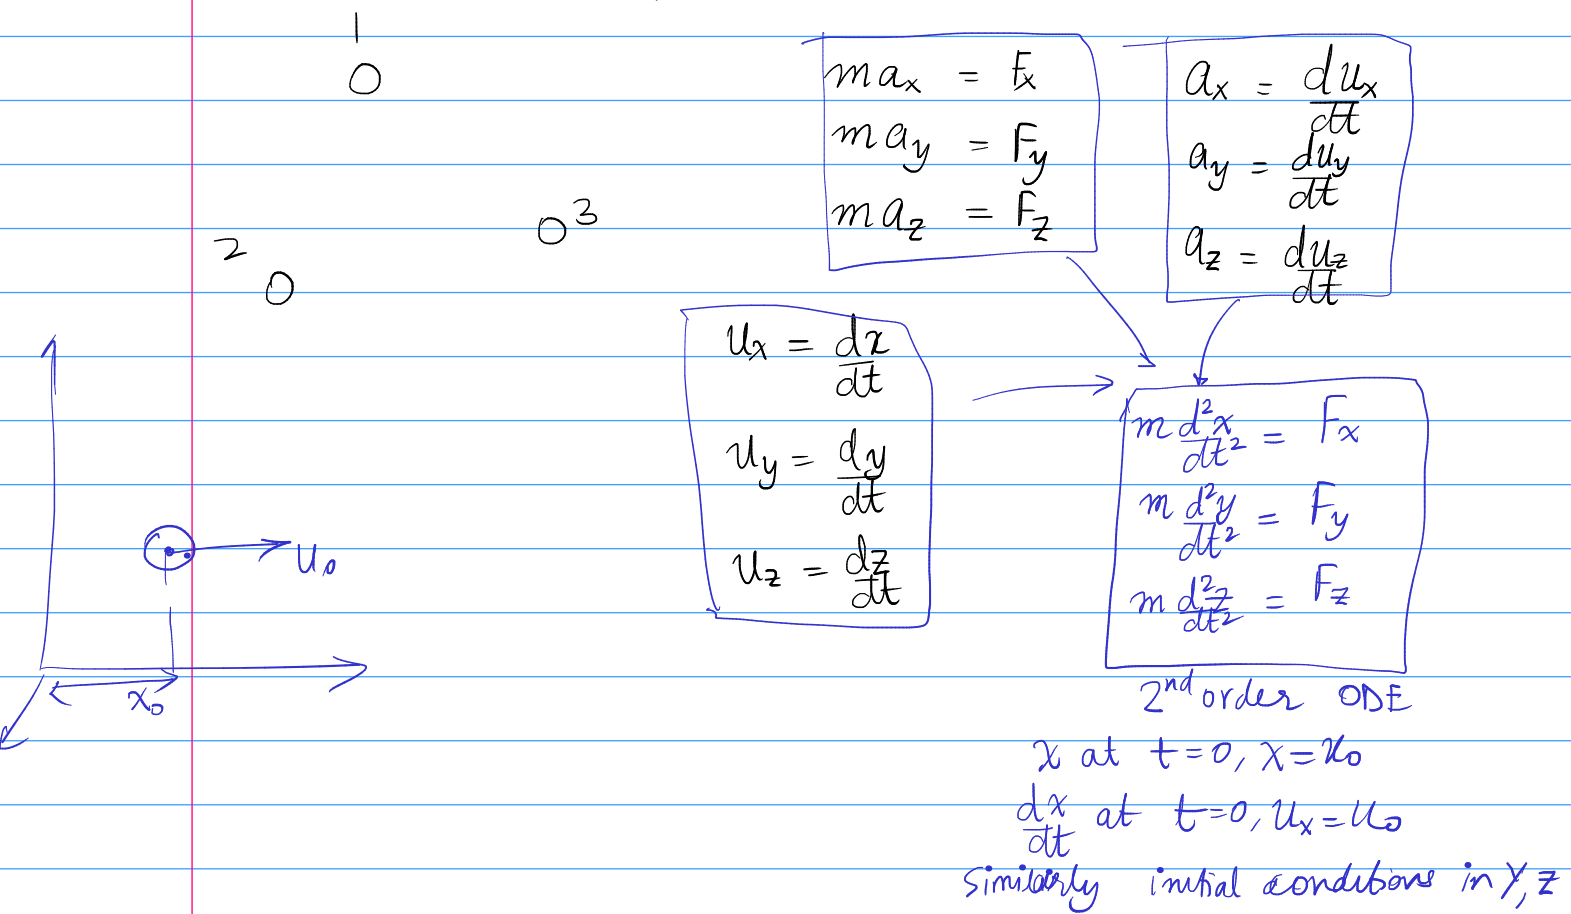 1
O
O 3
2
O
u₀
x₀
m aₓ = Fₓ
m a_y = F_y
m a_z = F_z
aₓ = duₓ/dt
a_y = du_y/dt
a_z = du_z/dt
uₓ = dx/dt
u_y = dy/dt
u_z = dz/dt
m d²x/dt² = Fₓ
m d²y/dt² = F_y
m d²z/dt² = F_z
2nd order ODE
x at t=0, x=x₀
dx/dt at t=0, uₓ=u₀
Similarly initial conditions in Y, Z